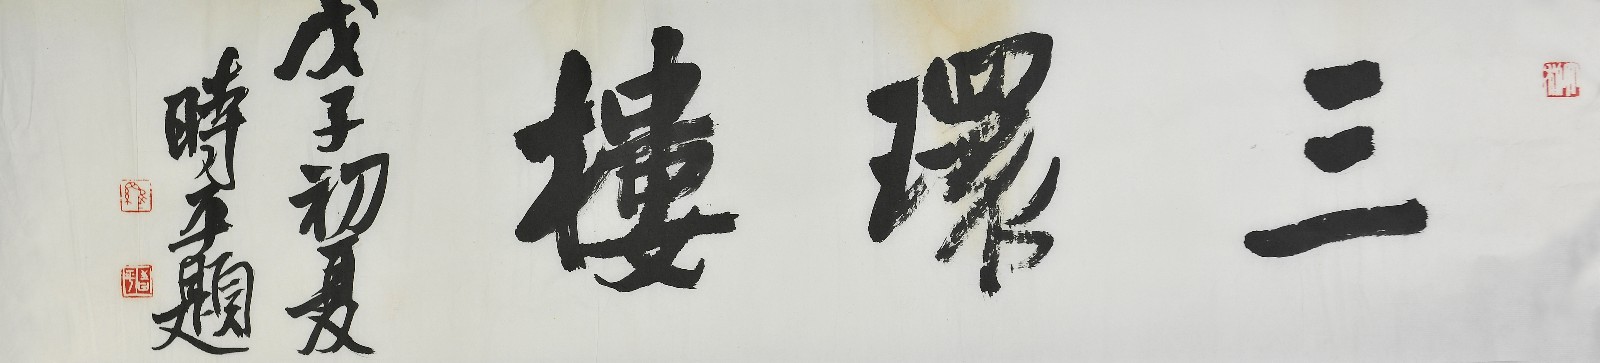 三環樓
戊子初夏
時平題